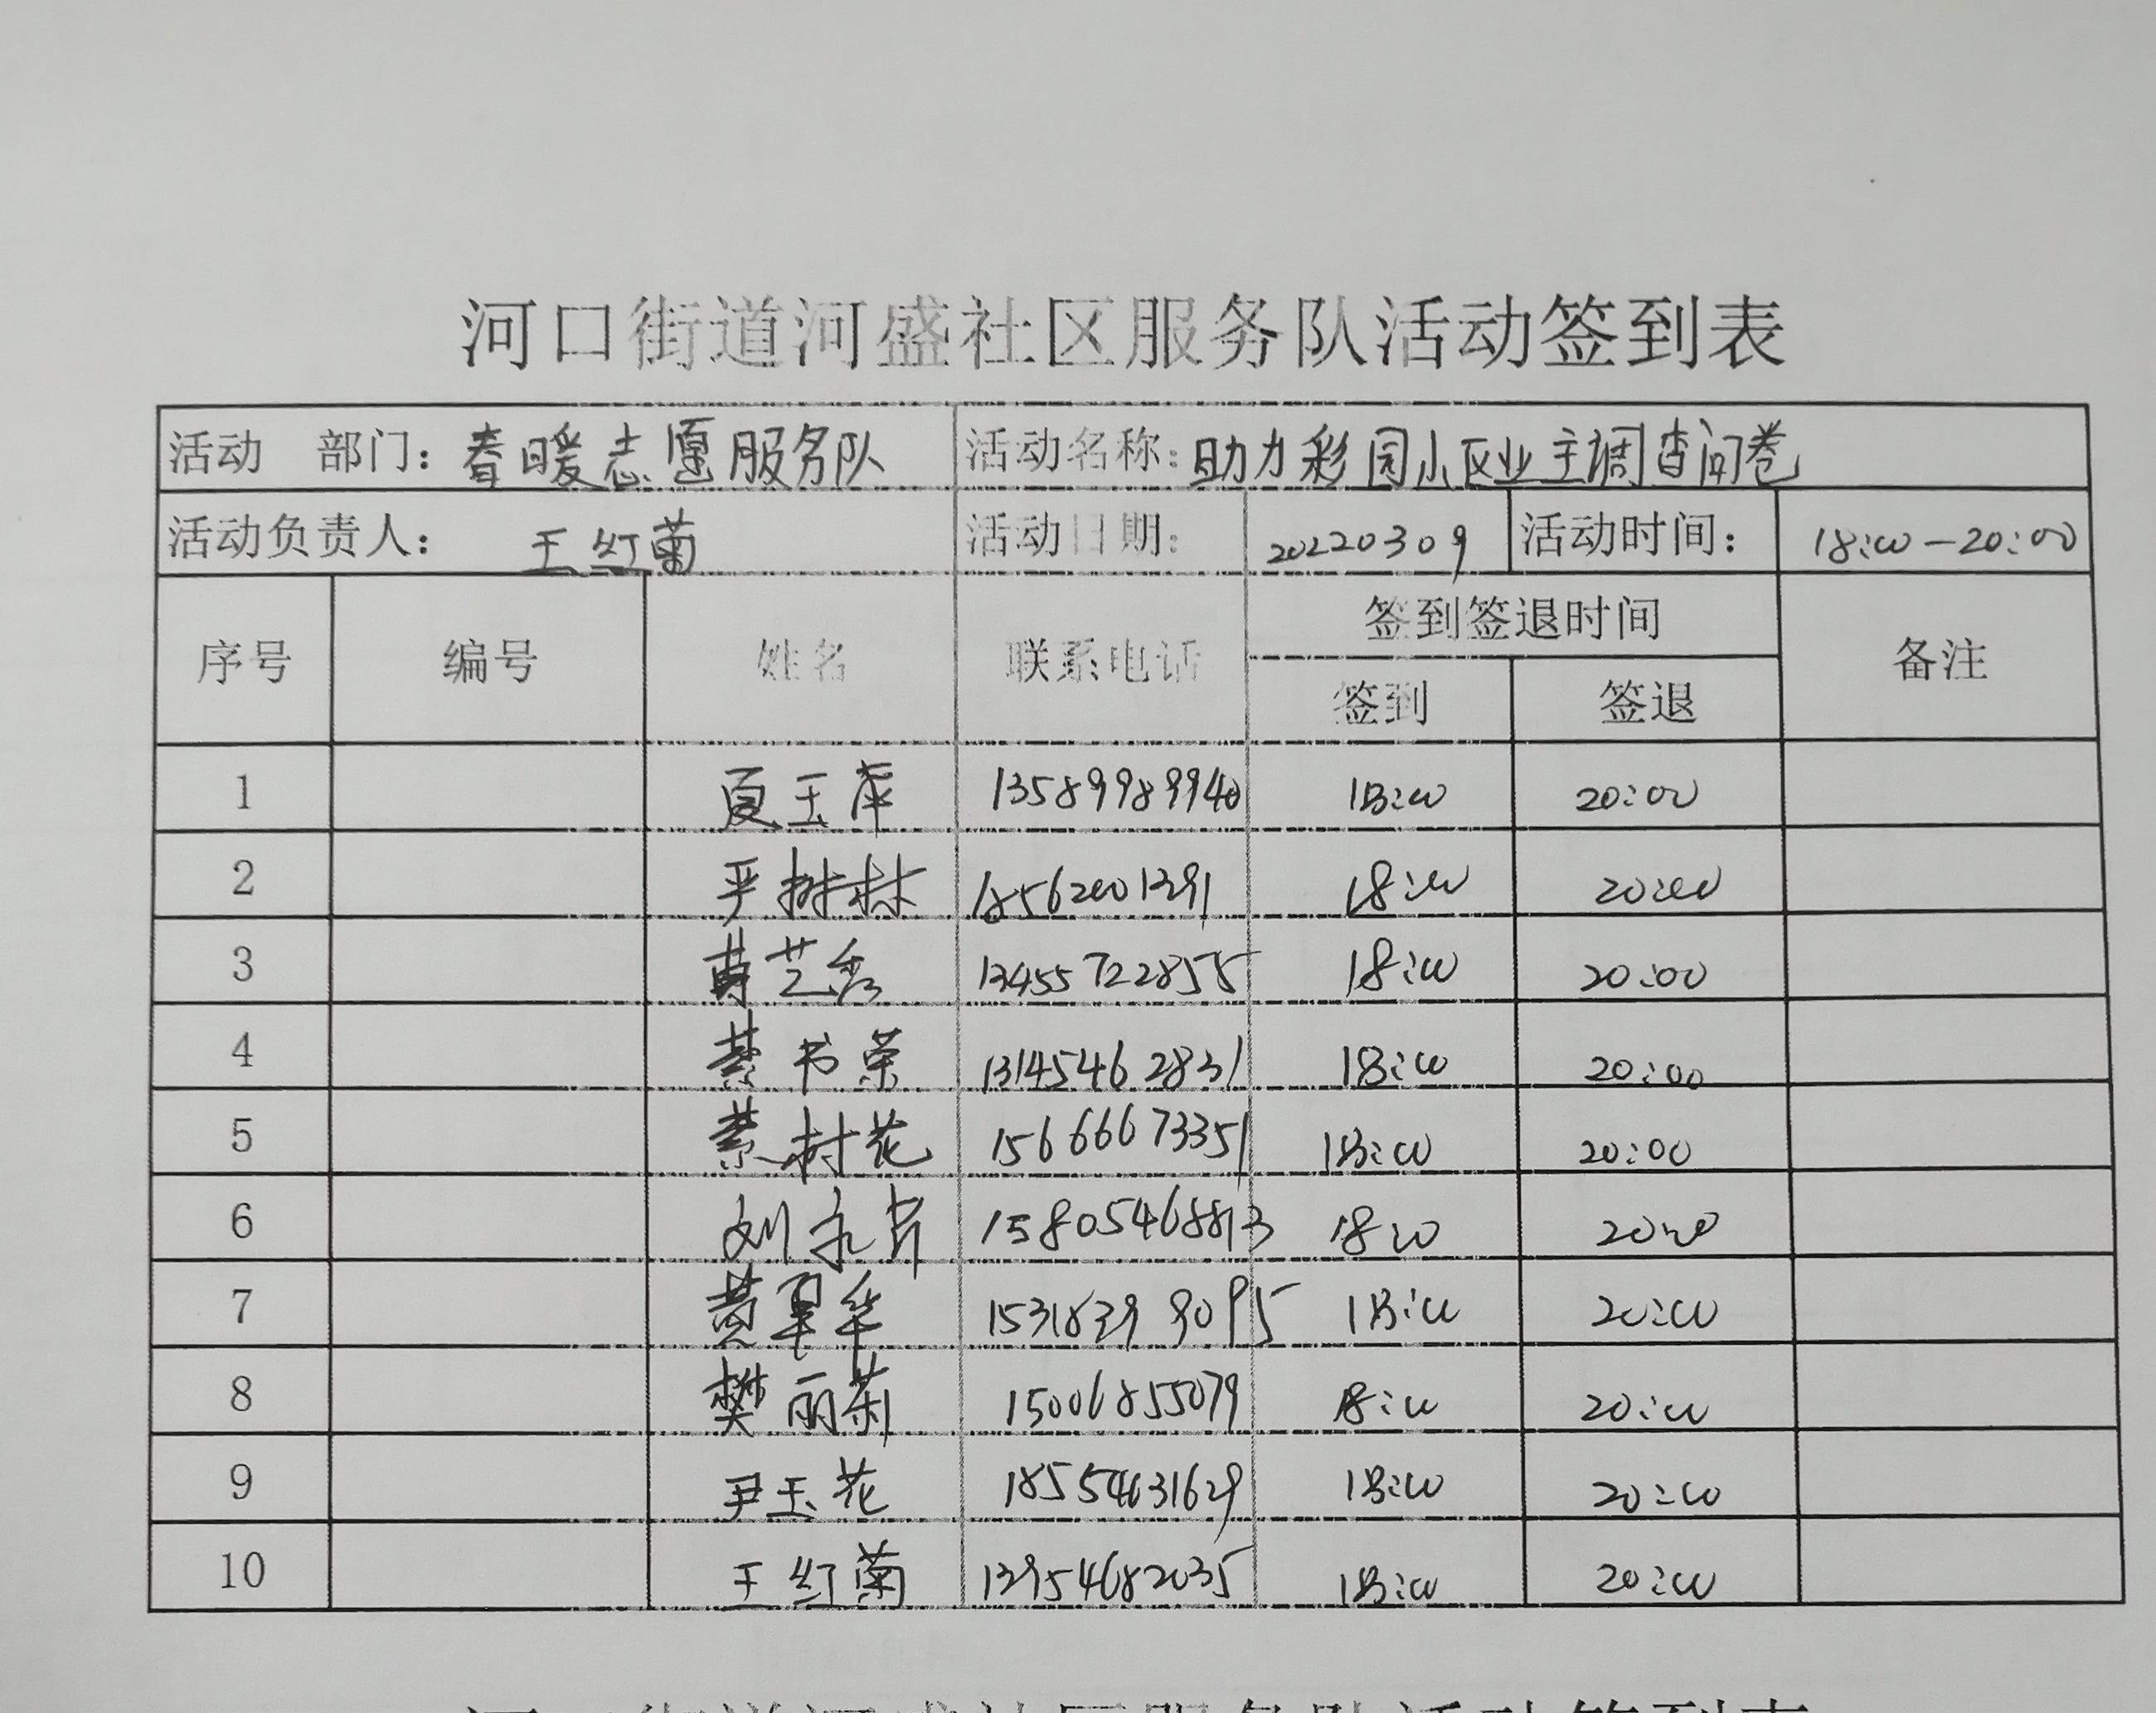 河口街道河盛社区服务队活动签到表
活动 部门：春暖志愿服务队 活动名称：助力彩园小区业主调查问卷
活动负责人： 王红菊 活动日期： 20220309 活动时间： 18:00-20:00
序号 编号 姓名 联系电话 签到签退时间 备注
签到 签退
1 夏玉萍 13589989940 18:00 20:00
2 严树林 18562001391 18:00 20:00
3 曹艺秀 13455722855 18:00 20:00
4 綦书荣 13145462831 18:00 20:00
5 綦树花 15666673351 18:00 20:00
6 刘永芹 15805468813 18:00 20:00
7 黄翠华 15318399095 18:00 20:00
8 樊丽菊 15006855079 18:00 20:00
9 尹玉花 18554631629 18:00 20:00
10 王红菊 13954682035 18:00 20:00
河口街道河盛社区服务队活动签到表